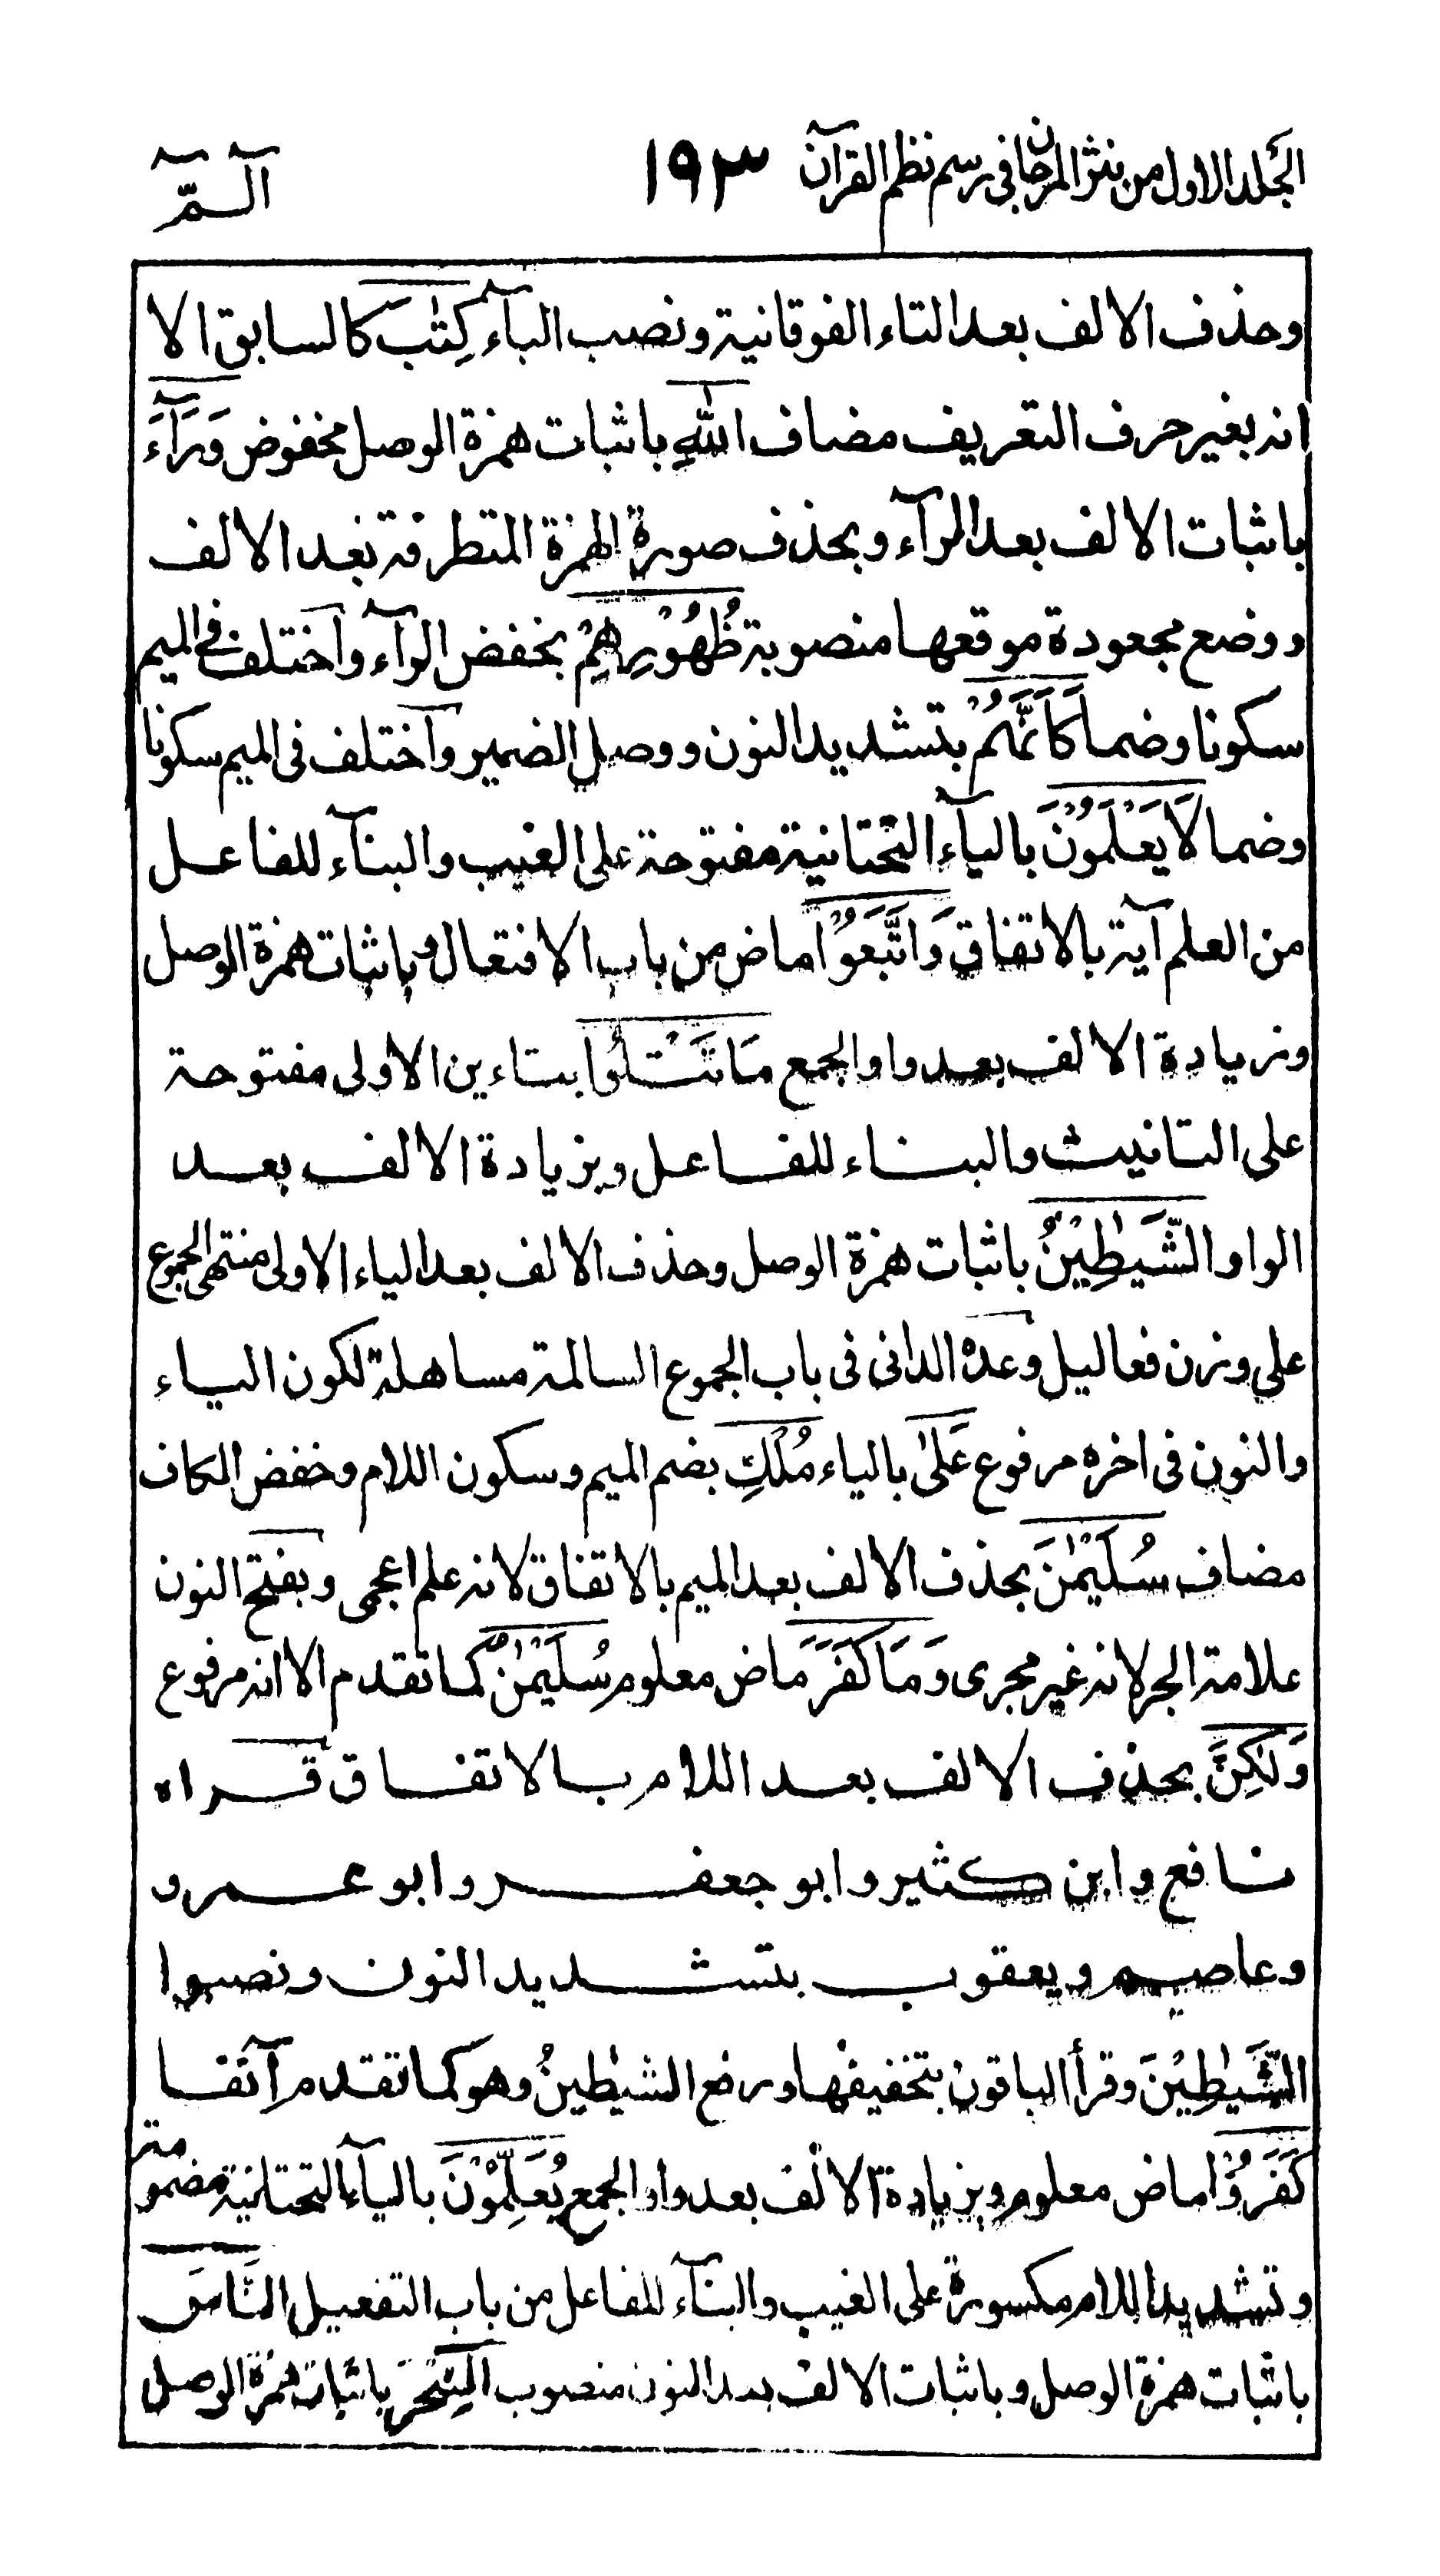 الجلد الاول من نثر المرجان فى رسم نظم القرآن ١٩٣ آلٓـمّٓ
وحذف الالف بعد التاء الفوقانية ونصب البآء كِتٰبَ كالسابق الا
انه بغير حرف التعريف مضاف اللّٰهِ باثبات همزة الوصل مخفوض وَرَآءَ
باثبات الالف بعد الرآء وبحذف صورة الهمزة المتطرفة بعد الالف
ووضع مجعودة موقعها منصوبة ظُهُوْرِهِمْ بخفض الرآء واختلف فى الميم
سكونا وضما كَاَنَّهُمْ بتشديد النون ووصل الضمير واختلف فى الميم سكونا
وضما لَا يَعْلَمُوْنَ بالياء التحتانية مفتوحة على الغيب والبنآء للفاعل
من العلم آية بالاتفاق وَاتَّبَعُوْا ماض من باب الافتعال وباثبات همزة الوصل
وزيادة الالف بعد واو الجمع مَا تَتْلُوا بتاءين الأولى مفتوحة
على التانيث والبناء للفاعل وبزيادة الالف بعد
الواو الشَّيٰطِيْنُ باثبات همزة الوصل وحذف الالف بعد الياء الاولى منتهى الجموع
على وزن فعاليل وعده الدانى فى باب الجموع السالمة مساهلة لكون الياء
والنون فى اخره مرفوع عَلٰى بالياء مُلْكِ بضم الميم وسكون اللام وخفض الكاف
مضاف سُلَيْمٰنَ بحذف الالف بعد الميم بالاتفاق لانه علم اعجمى وبفتح النون
علامة الجر لانه غير مجرى وَمَا كَفَرَ ماض معلوم سُلَيْمٰنُ كما تقدم الا انه مرفوع
وَلٰكِنَّ بحذف الالف بعد اللام بالاتفاق قراه
نافع وابن كثير وابو جعفر وابو عمرو
وعاصم ويعقوب بتشديد النون ونصبوا
الشَّيٰطِيْنَ وقرأ الباقون بتخفيفها ورفع الشيٰطينُ وهو كما تقدم آنفا
كَفَرُوْا ماض معلوم وبزيادة الالف بعد واو الجمع يُعَلِّمُوْنَ بالياء التحتانية مضمومة
وتشديد اللام مكسورة على الغيب والبنآء للفاعل من باب التفعيل النَّاسَ
باثبات همزة الوصل وباثبات الالف بعد النون منصوب السِّحْرَ باثبات همزة الوصل